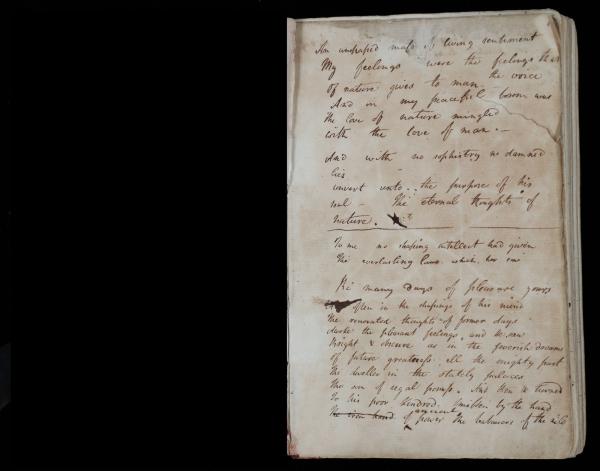 An unshaped mass of living sentiment
My feelings were the feelings that
Of nature gives to man. the voice
And in my peaceful bosom was
The love of nature mingled
with the love of man. —
And with no sophistry no damned
lies
invert unto .. the purpose of his
soul — The eternal thoughts of
nature.
To me no shaping intellect had given
The everlasting laws. which
many days of pleasure
often in the shapings of his mind
The renovated thoughts of former days
the pleasant feelings, and he saw
Bright & obscure as in the feverish dreams
of future greatness. all the mighty past
The dweller in the stately palaces
The son of regal pomp. And then he turned
To his poor kindred. smitten by the hand
The iron hand of ancient power The